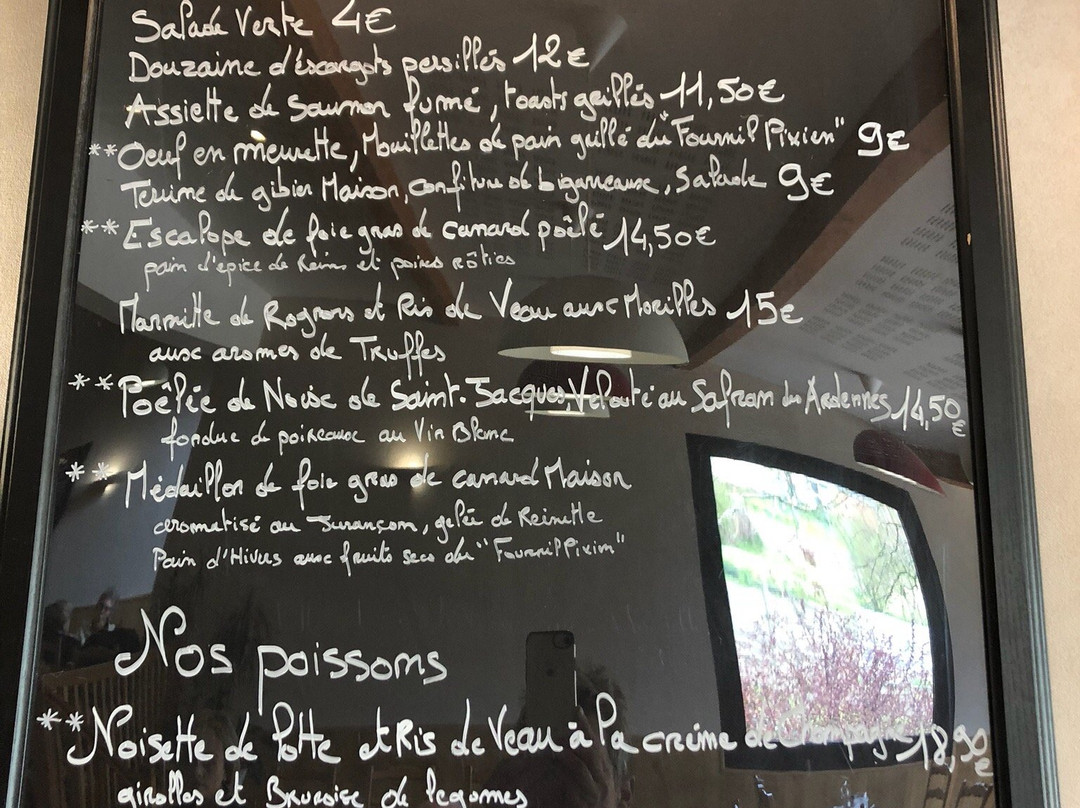 Salade Verte 4€
Douzaine d'éscargots persillés 12€
Assiette de Saumon fumé, toasts grillés 11,50€
**Oeuf en meurette, Mouillettes de pain grillé du "Fournil Pixien" 9€
Terrine de gibier Maison, confiture de bigarreaux, Salade 9€
**Escalope de foie gras de canard poêlé 14,50€
pain d'épice de Reims et poires rôties
Marmitte de Rognons et Ris de Veau aux Morilles 15€
aux aromes de Truffes
**Poêlée de Noix de Saint-Jacques, Velouté au Safran des Ardennes 14,50€
fondue de poireaux au Vin Blanc
** Médaillon de foie gras de canard Maison
aromatisé au Jurançon, gelée de Reinette
Pain d'Hivers aux fruits secs du "Fournil Pixien"
Nos poissons
**Noisette de lotte et Ris de Veau à la crème de champagne 18,90€
girolles et Brunoise de legumes